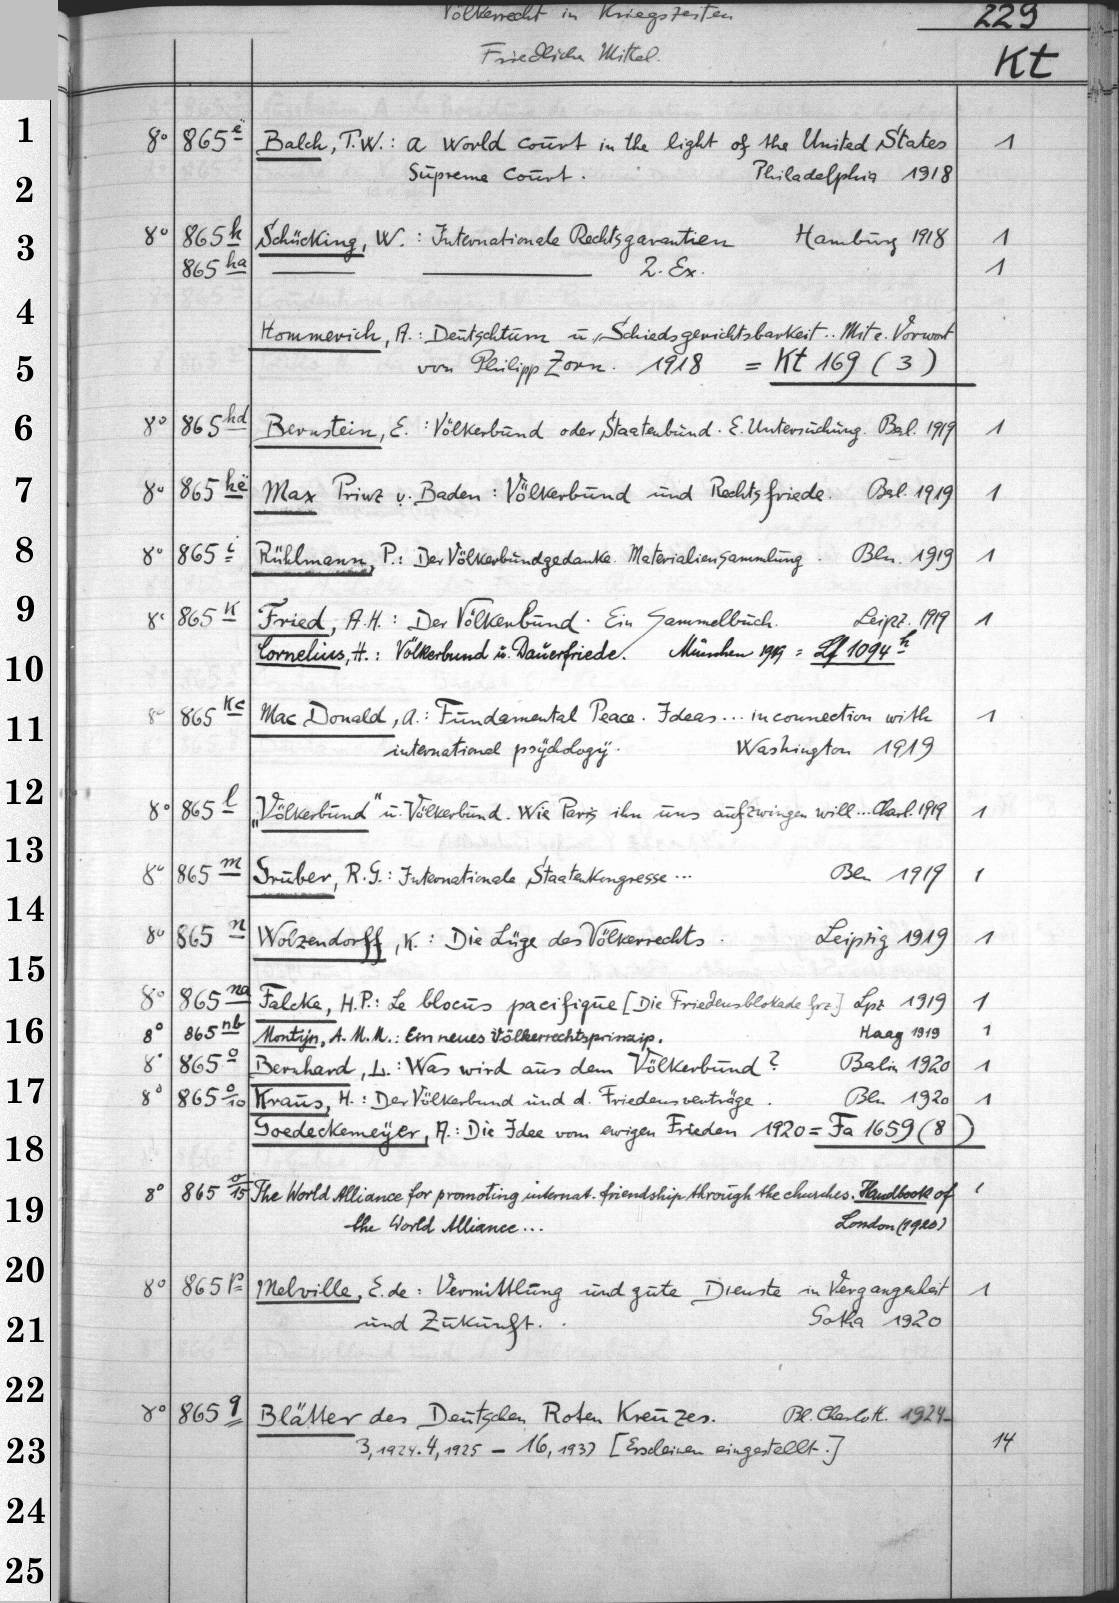 Völkerrecht in Kriegszeiten 229
Friedliche Mittel. Kt
1 8° 865 e Balch, T.W.: A World Court in the light of the United States 1
2 Supreme Court. Philadelphia 1918
3 8° 865 h Schücking, W.: Internationale Rechtsgarantien Hamburg 1918 1
865 ha 2. Ex. 1
4 Hommerich, A.: Deutschtum u. Schiedsgerichtsbarkeit.. Mit e. Vorwort
5 von Philipp Zorn. 1918 = Kt 169 (3)
6 8° 865 hd Bernstein, E.: Völkerbund oder Staatenbund. E. Untersuchung. Bel. 1919 1
7 8° 865 he Max Prinz v. Baden: Völkerbund und Rechtsfriede. Bel. 1919 1
8 8° 865 i Rühlmann, P.: Der Völkerbundgedanke. Materialiensammlung. Bln. 1919 1
9 8° 865 k Fried, A.H.: Der Völkerbund. Ein Sammelbuch. Leipz. 1919 1
10 Cornelius, H.: Völkerbund u. Dauerfriede. München 1919 = Lf 1094 h
11 8° 865 kc Mac Donald, A.: Fundamental Peace. Ideas... in connection with 1
international psychology. Washington 1919
12 8° 865 l „Völkerbund" u. Völkerbund. Wie Paris ihn uns aufzwingen will... Charl. 1919 1
13 8° 865 m Gruber, R.G.: Internationale Staatenkongresse... Bln 1919 1
14 8° 865 n Wolzendorff, K.: Die Lüge des Völkerrechts. Leipzig 1919 1
15 8° 865 na Falcke, H.P.: Le blocus pacifique [Die Friedensblokade frz.] Lpz 1919 1
16 8° 865 nb Montijn, A.M.M.: Ein neues Völkerrechtsprinzip. Haag 1919 1
8° 865 o Bernhard, L.: Was wird aus dem Völkerbund? Berlin 1920 1
17 8° 865 o/10 Kraus, H.: Der Völkerbund und d. Friedensverträge. Bln 1920 1
18 Goedeckemeyer, A.: Die Idee vom ewigen Frieden 1920 = Fa 1659 (8)
19 8° 865 o/15 The World Alliance for promoting internat. friendship through the churches. Handbook of 1
the World Alliance... London (1920)
20 8° 865 p Melville, E. de: Vermittlung und gute Dienste in Vergangenheit 1
21 und Zukunft. Gotha 1920
22 8° 865 q Blätter des Deutschen Roten Kreuzes. Bl. Charlott. 1924-
23 3, 1924. 4, 1925 – 16, 1937 [Erscheinen eingestellt.] 14
24
25